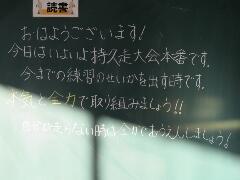 読書
おはようございます!
今日はいよいよ持久走大会本番です。
今までの練習のせいかを出す時です。
本気と全力で取り組みましょう!!
自分が走らない時は全力でおうえんしましょう!